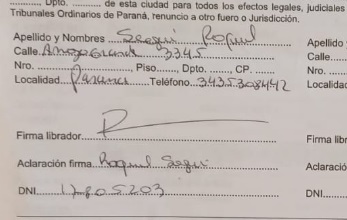 ........., Dpto. .......... de esta ciudad para todos los efectos legales, judiciales
Tribunales Ordinarios de Paraná, renuncio a otro fuero o Jurisdicción.
Apellido y Nombres Seegui Raquel Apellido
Calle Arroyo Grande 3345 Calle
Nro. ................, Piso......, Dpto. ........, CP. ....... Nro.
Localidad Parana Teléfono 3435308442 Localidad
Firma librador Firma libr
Aclaración firma Raquel Segui Aclaració
DNI 17805203 DNI